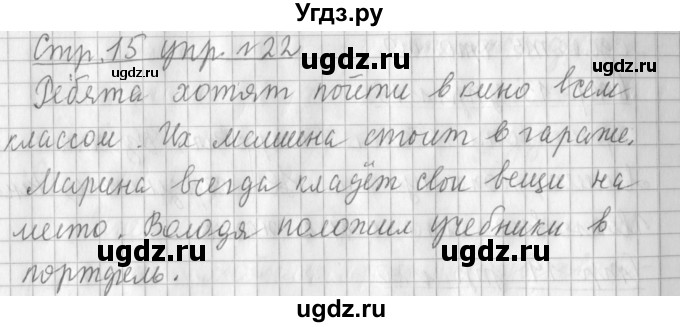 Угдз.ру
Стр. 15 упр. №22
Ребята хотят пойти в кино всем
классом. Их машина стоит в гараже.
Марина всегда кладёт свои вещи на
место. Володя положил учебники в
портфель.
ugdz.ru
ugdz.ru
ugdz.ru
ugdz.ru
ugdz.ru
ugdz.ru
ugdz.ru
ugdz.ru
ugdz.ru
Угдз.ру